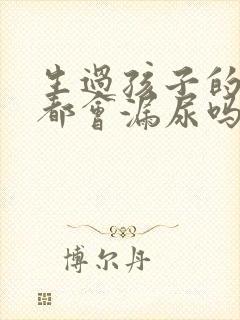 生過孩子的
都會漏尿吗
博尔丹